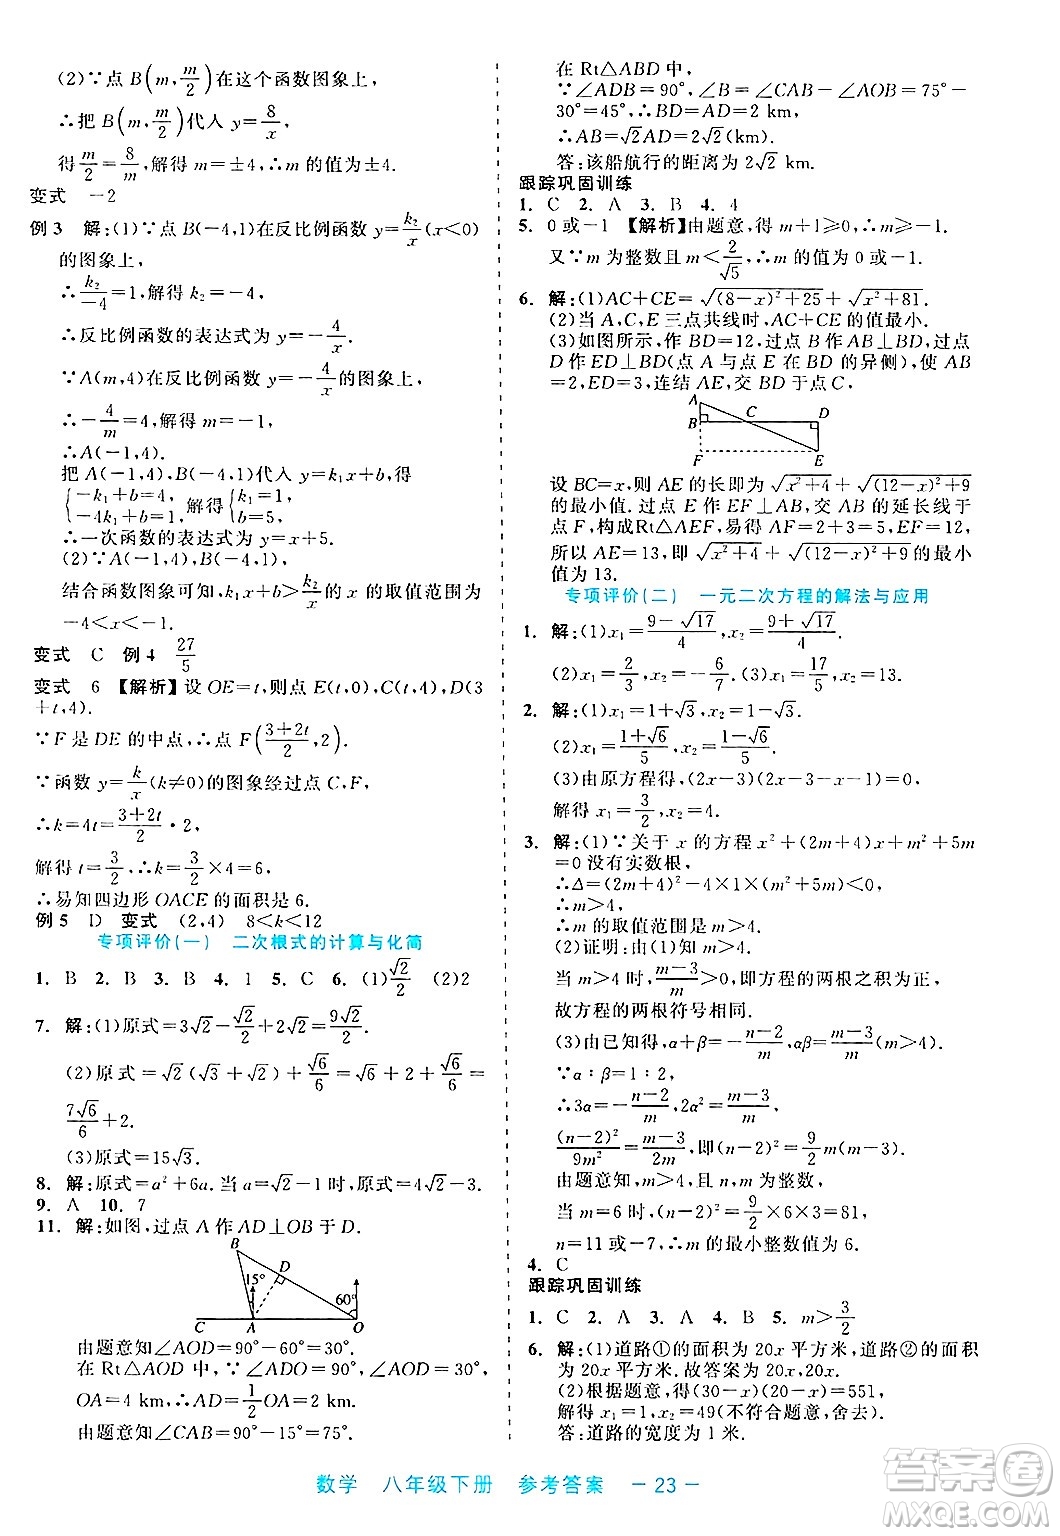 (2)∵点 B(m,m/2)在这个函数图象上,
∴把 B(m,m/2)代入 y=8/x,
得 m/2=8/m,解得 m=±4,∴m 的值为±4.
变式 －2
例3 解:(1)∵点 B(－4,1)在反比例函数 y=k₂/x(x<0)
的图象上,
∴k₂/－4=1,解得 k₂=－4,
∴反比例函数的表达式为 y=－4/x,
∵A(m,4)在反比例函数 y=－4/x 的图象上,
∴－4/m=4,解得 m=－1,
∴A(－1,4).
把 A(－1,4),B(－4,1)代入 y=k₁x+b,得
{－k₁+b=4, 解得{k₁=1,
－4k₁+b=1, b=5,
∴一次函数的表达式为 y=x+5.
(2)∵A(－1,4),B(－4,1),
结合函数图象可知,k₁x+b>k₂/x 的 x 的取值范围为
－4<x<－1.
变式 C 例4 27/5
变式 6 【解析】设 OE=t,则点 E(t,0),C(t,4),D(3
+t,4).
∵F 是 DE 的中点,∴点 F((3+2t)/2,2).
∵函数 y=k/x(k≠0)的图象经过点 C,F,
∴k=4t=(3+2t)/2·2,
解得 t=3/2,∴k=3/2×4=6,
∴易知四边形 OACE 的面积是 6.
例5 D 变式 (2,4) 8<k<12
专项评价(一) 二次根式的计算与化简
1. B 2. B 3. B 4. 1 5. C 6. (1)√2/2 (2)2
7. 解:(1)原式=3√2－√2/2+2√2=9√2/2.
(2)原式=√2(√3+√2)+√6/6=√6+2+√6/6=
7√6/6+2.
(3)原式=15√3.
8. 解:原式=a²+6a.当 a=√2－1 时,原式=4√2－3.
9. A 10. 7
11. 解:如图,过点 A 作 AD⊥OB 于 D.
B
D
15°
60°
C A O
由题意知∠AOD=90°－60°=30°.
在 Rt△AOD 中,∵∠ADO=90°,∠AOD=30°,
OA=4 km,∴AD=1/2OA=2 km.
由题意知∠CAB=90°－15°=75°.
在 Rt△ABD 中,
∵∠ADB=90°,∠B=∠CAB－∠AOB=75°－
30°=45°,∴BD=AD=2 km,
∴AB=√2AD=2√2(km).
答:该船航行的距离为 2√2 km.
跟踪巩固训练
1. C 2. A 3. B 4. 4
5. 0 或－1 【解析】由题意,得 m+1≥0,∴m≥－1.
又∵m 为整数且 m<2/√5,∴m 的值为 0 或－1.
6. 解:(1)AC+CE=√((8－x)²+25)+√(x²+81).
(2)当 A,C,E 三点共线时,AC+CE 的值最小.
(3)如图所示,作 BD=12,过点 B 作 AB⊥BD,过点
D 作 ED⊥BD(点 A 与点 E 在 BD 的异侧),使 AB
=2,ED=3,连结 AE,交 BD 于点 C,
A C D
B
F E
设 BC=x,则 AE 的长即为 √(x²+4)+√((12－x)²+9)
的最小值.过点 E 作 EF⊥AB,交 AB 的延长线于
点 F,构成Rt△AEF,易得 AF=2+3=5,EF=12,
所以 AE=13,即 √(x²+4)+√((12－x)²+9) 的最小
值为 13.
专项评价(二) 一元二次方程的解法与应用
1. 解:(1)x₁=(9－√17)/4,x₂=(9+√17)/4.
(2)x₁=2/3,x₂=－6/7.(3)x₁=17/5,x₂=1.
2. 解:(1)x₁=1+√3,x₂=1－√3.
(2)x₁=(1+√6)/5,x₂=(1－√6)/5.
(3)由原方程得,(2x－3)(2x－8)=0,
解得 x₁=3/2,x₂=4.
3. 解:(1)∵关于 x 的方程 x²+(2m+4)x+m²+5m
=0 没有实数根,
∴Δ=(2m+4)²－4×1×(m²+5m)<0,
∴m>4,
∴m 的取值范围是 m>4.
(2)证明:由于方程的两根之积为 (m－3)/m,
当 m>4 时,(m－3)/m>0,即方程的两根之积为正,
故方程的两根符号相同.
(3)由已知得,α+β=－(n－2)/m,αβ=(m－3)/m.
∵α:β=1:2,
∴3α=－(n－2)/m,2α²=(m－3)/m.
(n－2)²/9m²=(m－3)/2m,即(n－2)²=9/2m(m－3),
由题意知,m>4,且 m,n 为整数,
当 m=6 时,(n－2)²=9/2×6×3=81,
n=11 或－7,∴m 的最小整数值为 6.
4. C
跟踪巩固训练
1. C 2. A 3. A 4. B 5. m>3/2
6. 解:(1)道路①的面积为 20x 平方米,道路②的面
积为 20x 平方米.故答案为 20x,20x.
(2)根据题意,得(30－x)(20－x)=551,
解得 x₁=1,x₂=49(不符合题意,舍去).
答:道路的宽度为 1 米.
数学 八年级下册 参考答案 －23－
答案圈
MXQE.COM